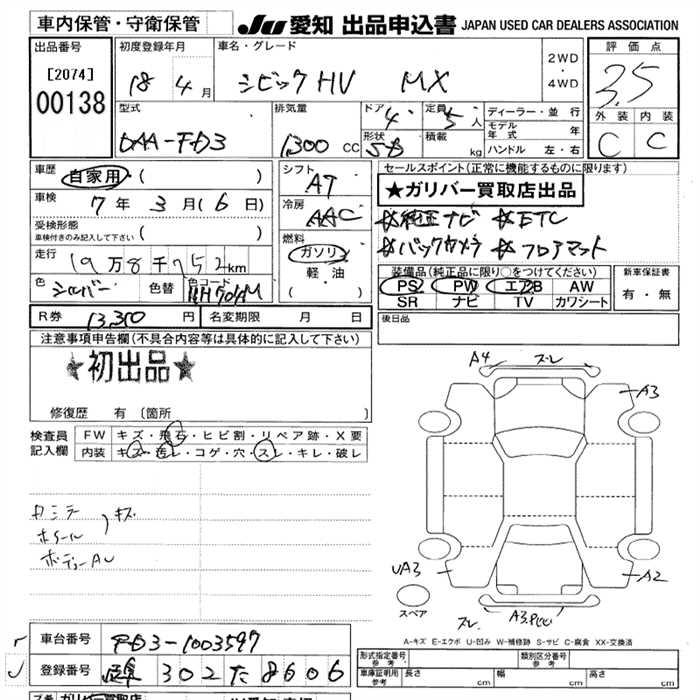 車内保管・守衛保管
JU 愛知 出品申込書 JAPAN USED CAR DEALERS ASSOCIATION
出品番号
[2074]
00138
初度登録年月
18 4月
車名・グレード
シビックHV MX
2WD
・
4WD
評価点
3.5
外装 内装
C C
型式
DAA-FD3
排気量
1300 CC
ドア 4
形状 5-B
定員 5人
積載 kg
ディーラー・並行
モデル年式 年
ハンドル 左・右
車歴
自家用 ( )
車検
7年 3月(6日)
受検形態
車検付きのみ記入して下さい ( )
走行
19万8千752km
色 シルバー 色替 色コード NH704M
シフト
AT
冷房
AAC
燃料
ガソリン
軽・油
( ・ )
セールスポイント(正常に機能するものに限ります)
★ガリバー買取店出品
※純正ナビ ※ETC
※バックカメラ ※フロアマット
装備品(純正品に限り○をつけてください)
PS PW エアB AW
SR ナビ TV カワシート
新車保証書
有・無
R券 13,310円 名変期限 月 日
後日品
注意事項申告欄(不具合内容等は具体的に記入して下さい)
★初出品★
修復歴 有 〔箇所 〕
検査員
記入欄
FW キズ・飛石・ヒビ割・リペア跡・X要
内装 キズ・汚レ・コゲ・穴・スレ・キレ・破レ
カミラー
ホイール
キズ
ボディーAU
A4 スレ
A3
UA3
A2
スペア
スレ A3
A-キズ E-エクボ U-凹み W-補修跡 S-サビ C-腐食 XX-交換済
車台番号 FD3-1003597
登録番号 302 た 8606
形式指定番号
参考
類別区分番号
参考
車庫証明用
参考
長さ cm 幅 cm 高さ cm
ガリバー買取店